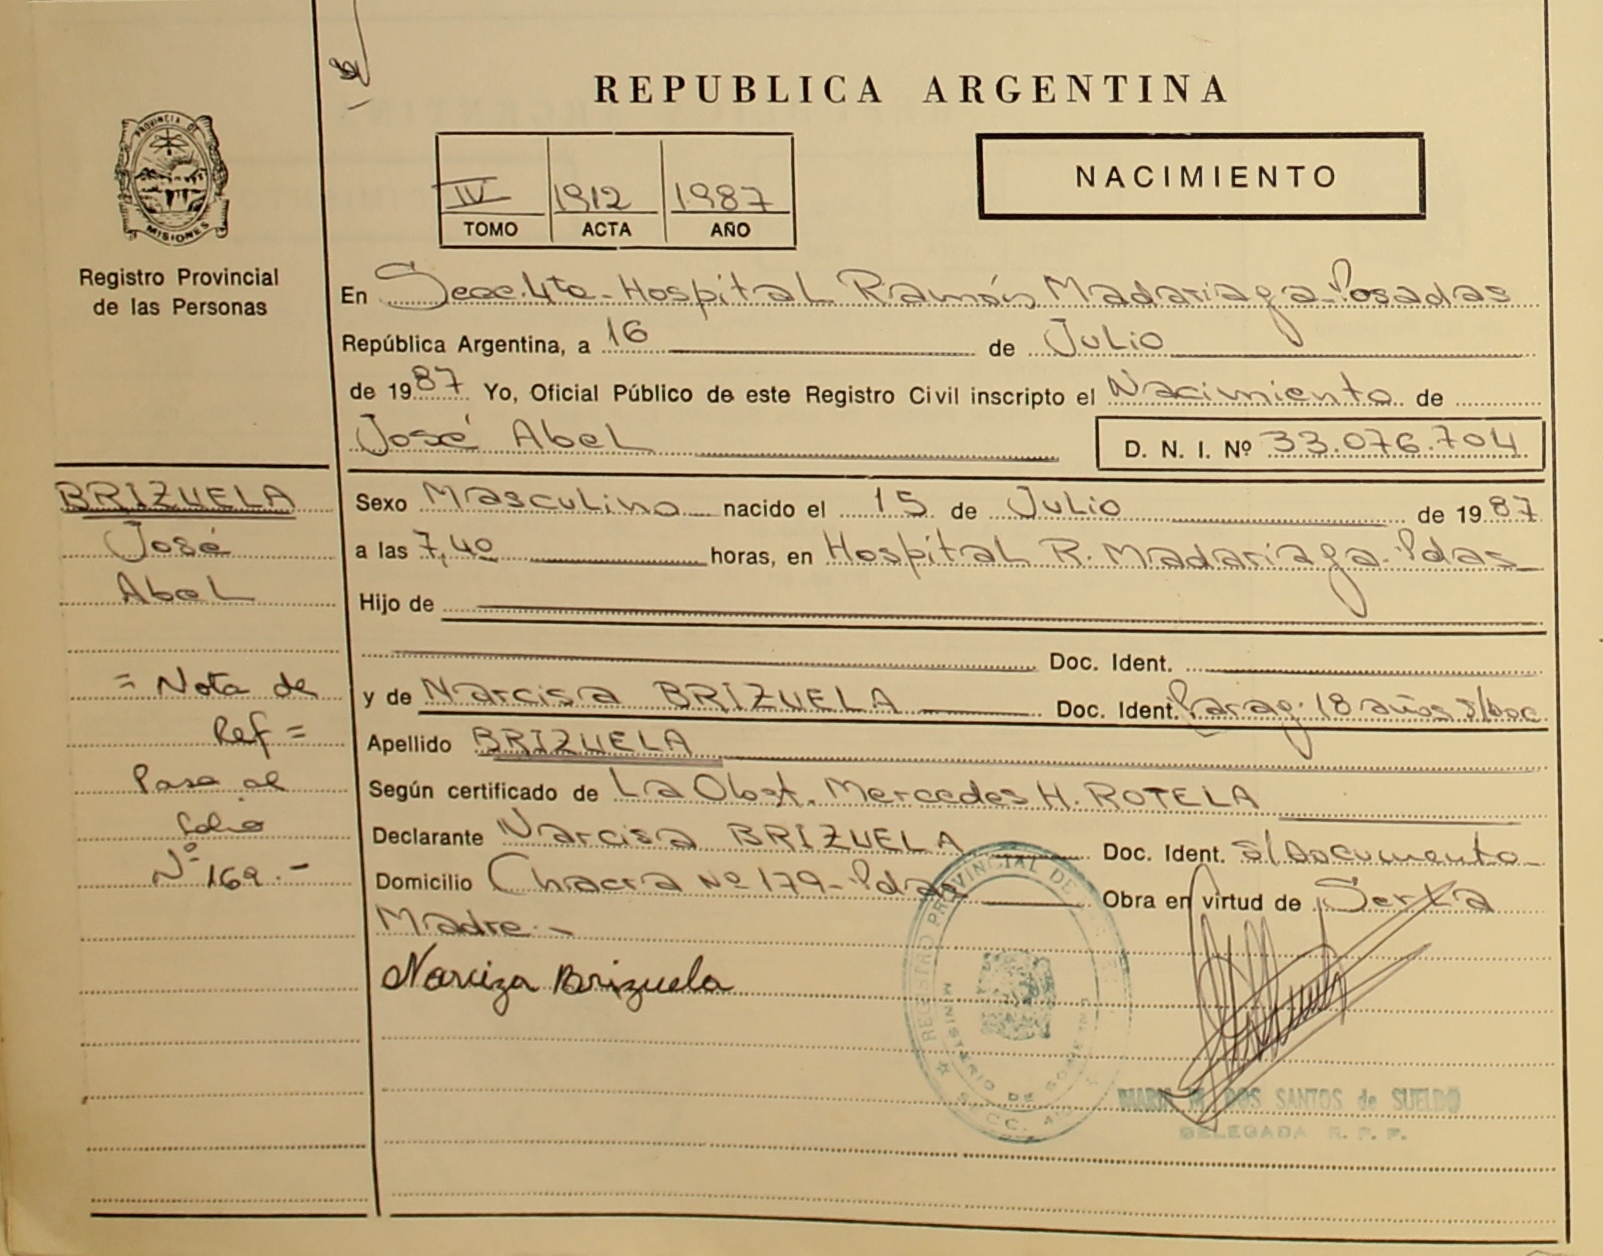 REPUBLICA ARGENTINA
PROVINCIA DE
MISIONES
Registro Provincial
de las Personas
IV 1912 1987
TOMO ACTA AÑO
NACIMIENTO
En Secc. 4ta - Hospital Ramón Madariaga - Posadas
República Argentina, a 16 de Julio
de 1987 Yo, Oficial Público de este Registro Civil inscripto el Nacimiento de
José Abel D. N. I. Nº 33.076.704
BRIZUELA
José
Abel
= Nota de
Ref =
Pasa al
folio
Nº 169.-
Sexo Masculino nacido el 15 de Julio de 1987
a las 7,40 horas, en Hospital R. Madariaga - Pdas
Hijo de
Doc. Ident.
y de Narcisa BRIZUELA Doc. Ident. Parag. 18 años s/Doc
Apellido BRIZUELA
Según certificado de La Obst. Mercedes H. ROTELA
Declarante Narcisa BRIZUELA Doc. Ident. s/Documento
Domicilio Chacra Nº 179 - Pdas Obra en virtud de Ser La
Madre.-
Narciza Brizuela
REGISTRO PROVINCIAL DE
MINISTERIO DE GOBIERNO
DOS SANTOS de SUELDO
DELEGADA R. P. P.